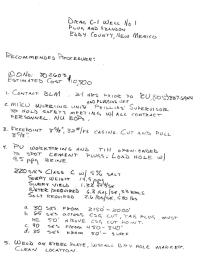 DRAG C-1 WELL NO 1
PLUG AND ABANDON
EDDY COUNTY, NEW MEXICO
RECOMMENDED PROCEDURE:
ESTIMATED COST
1. CONTACT BLM 24 HRS PRIOR TO
AND PLUGGING OFF
2. MIRU WORKOVER UNIT. PHILLIPS SUPERVISOR
TO HOLD SAFETY MEETING W/ALL CONTRACT
PERSONNEL. NU BOP.
3. FREEPOINT 8 5/8", 32#/FT CASING. CUT AND PULL
8 5/8".
4. PU WORKSTRING AND TIH OPEN-ENDED
TO SPOT CEMENT PLUGS. LOAD HOLE W/
9.5 PPG BRINE.
220 SXS CLASS C W/ 2% SALT
SLURRY WEIGHT 14.8 PPG
SLURRY YIELD 1.32
WATER REQUIRED 6.3 GAL/SX
SALT REQUIRED
a. 30 SXS FROM 2150 - 2000'
b. 65 SXS ACROSS CSG CUT, TAG PLUG, MUST
BE 50' ABOVE CSG CUT POINT.
c. 90 SXS FROM 450 - 340'
d. 35 SXS FROM 50' - SURF
5. WELD ON STEEL PLATE, INSTALL DRY HOLE MARKER.
CLEAN LOCATION.